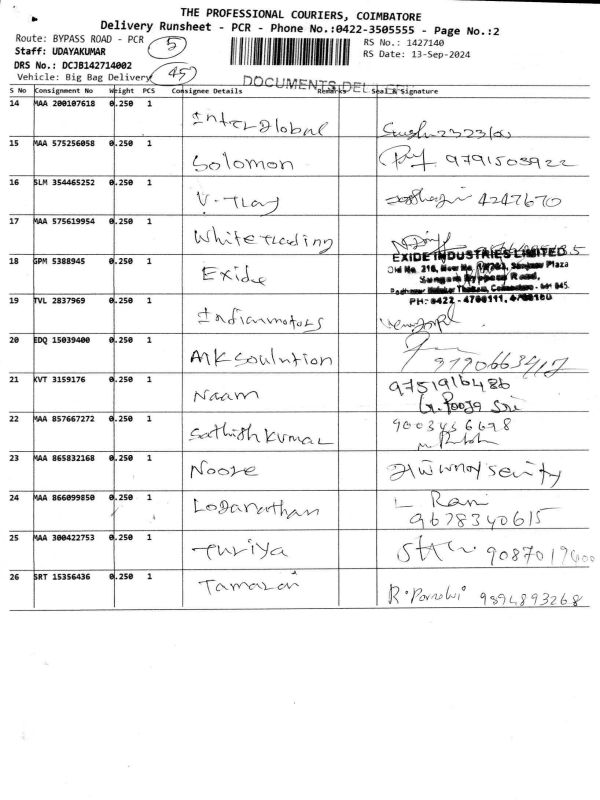 THE PROFESSIONAL COURIERS, COIMBATORE
Delivery Runsheet - PCR - Phone No.:0422-3505555 - Page No.:2
Route: BYPASS ROAD - PCR 5 RS No.: 1427140
Staff: UDAYAKUMAR RS Date: 13-Sep-2024
DRS No.: DCJB142714002
Vehicle: Big Bag Delivery 45 DOCUMENTS
S No Consignment No Weight PCS Consignee Details Remarks Seal & Signature
14 MAA 200107618 0.250 1 Interglobal
15 MAA 575256058 0.250 1 Solomon 9791503922
16 SLM 354465252 0.250 1 V-Tlay 4247670
17 MAA 575619954 0.250 1 Whitetrading
EXIDE INDUSTRIES LIMITED
18 GPM 5388945 0.250 1 Exide
PH: 0422 - 4700111,
19 TVL 2837969 0.250 1 Indianmotors
20 EDQ 15039400 0.250 1 MK Soulution 9790663412
21 KVT 3159176 0.250 1 Naam 9751916486
G. Pooja Sri
22 MAA 857667272 0.250 1 Sathish Kumar 9003456678
23 MAA 865832168 0.250 1 Noore
24 MAA 866099850 0.250 1 Loganathan L Rani
9678340615
25 MAA 300422753 0.250 1 Turiya 9087019600
26 SRT 15356436 0.250 1 Tamarai 9894893268